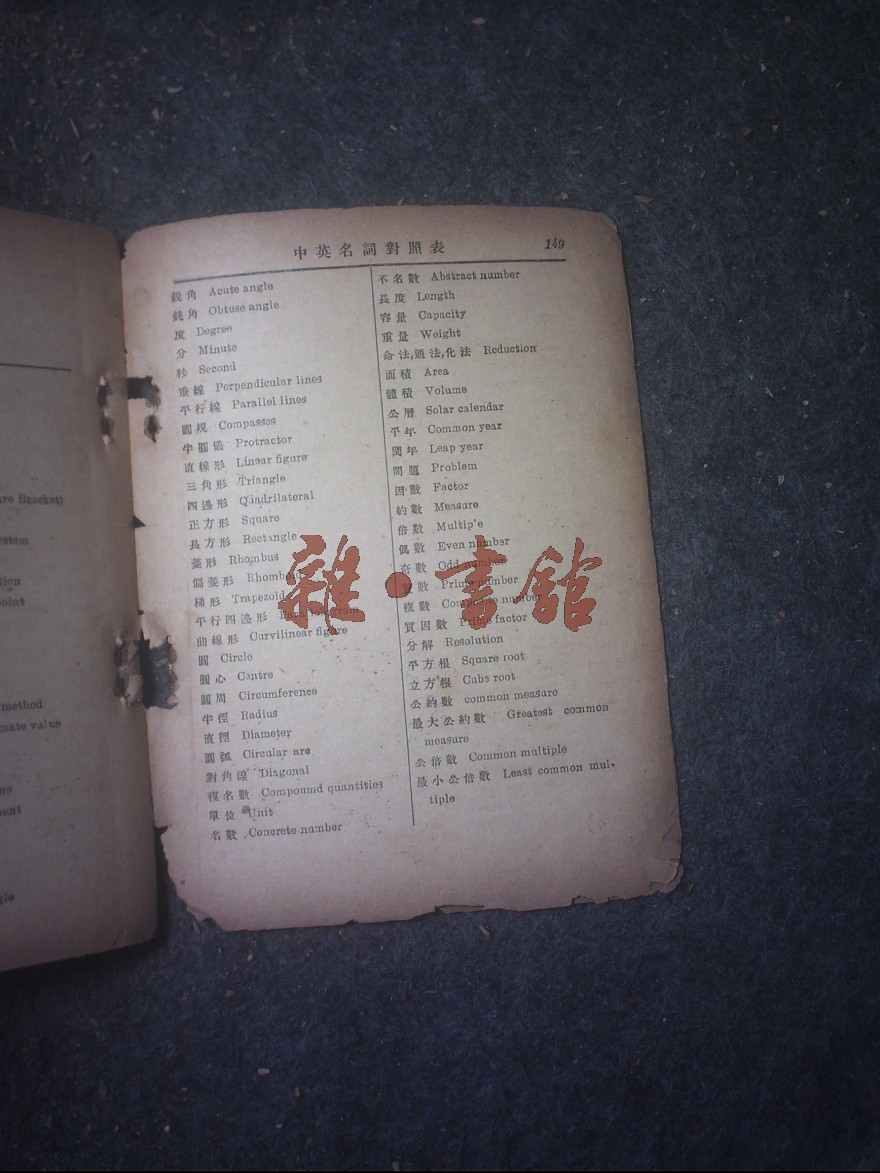 中英名詞對照表 149
銳角 Acute angle
鈍角 Obtuse angle
度 Degree
分 Minute
秒 Second
垂線 Perpendicular lines
平行線 Parallel lines
圓規 Compasses
半圓儀 Protractor
直線形 Linear figure
三角形 Triangle
四邊形 Quadrilateral
正方形 Square
長方形 Rectangle
菱形 Rhombus
偏菱形 Rhomboid
梯形 Trapezoid
平行四邊形 Parallelogram
曲線形 Curvilinear figure
圓 Circle
圓心 Centre
圓周 Circumference
半徑 Radius
直徑 Diameter
圓弧 Circular arc
對角線 Diagonal
複名數 Compound quantities
單位 Unit
名數 Concrete number
不名數 Abstract number
長度 Length
容量 Capacity
重量 Weight
命法,通法,化法 Reduction
面積 Area
體積 Volume
公曆 Solar calendar
平年 Common year
閏年 Leap year
問題 Problem
因數 Factor
約數 Measure
倍數 Multiple
偶數 Even number
奇數 Odd number
質數 Prime number
複數 Composite number
質因數 Prime factor
分解 Resolution
平方根 Square root
立方根 Cube root
公約數 common measure
最大公約數 Greatest common
measure
公倍數 Common multiple
最小公倍數 Least common mul-
tiple
雜·書館
are Bracket)
method
mate value